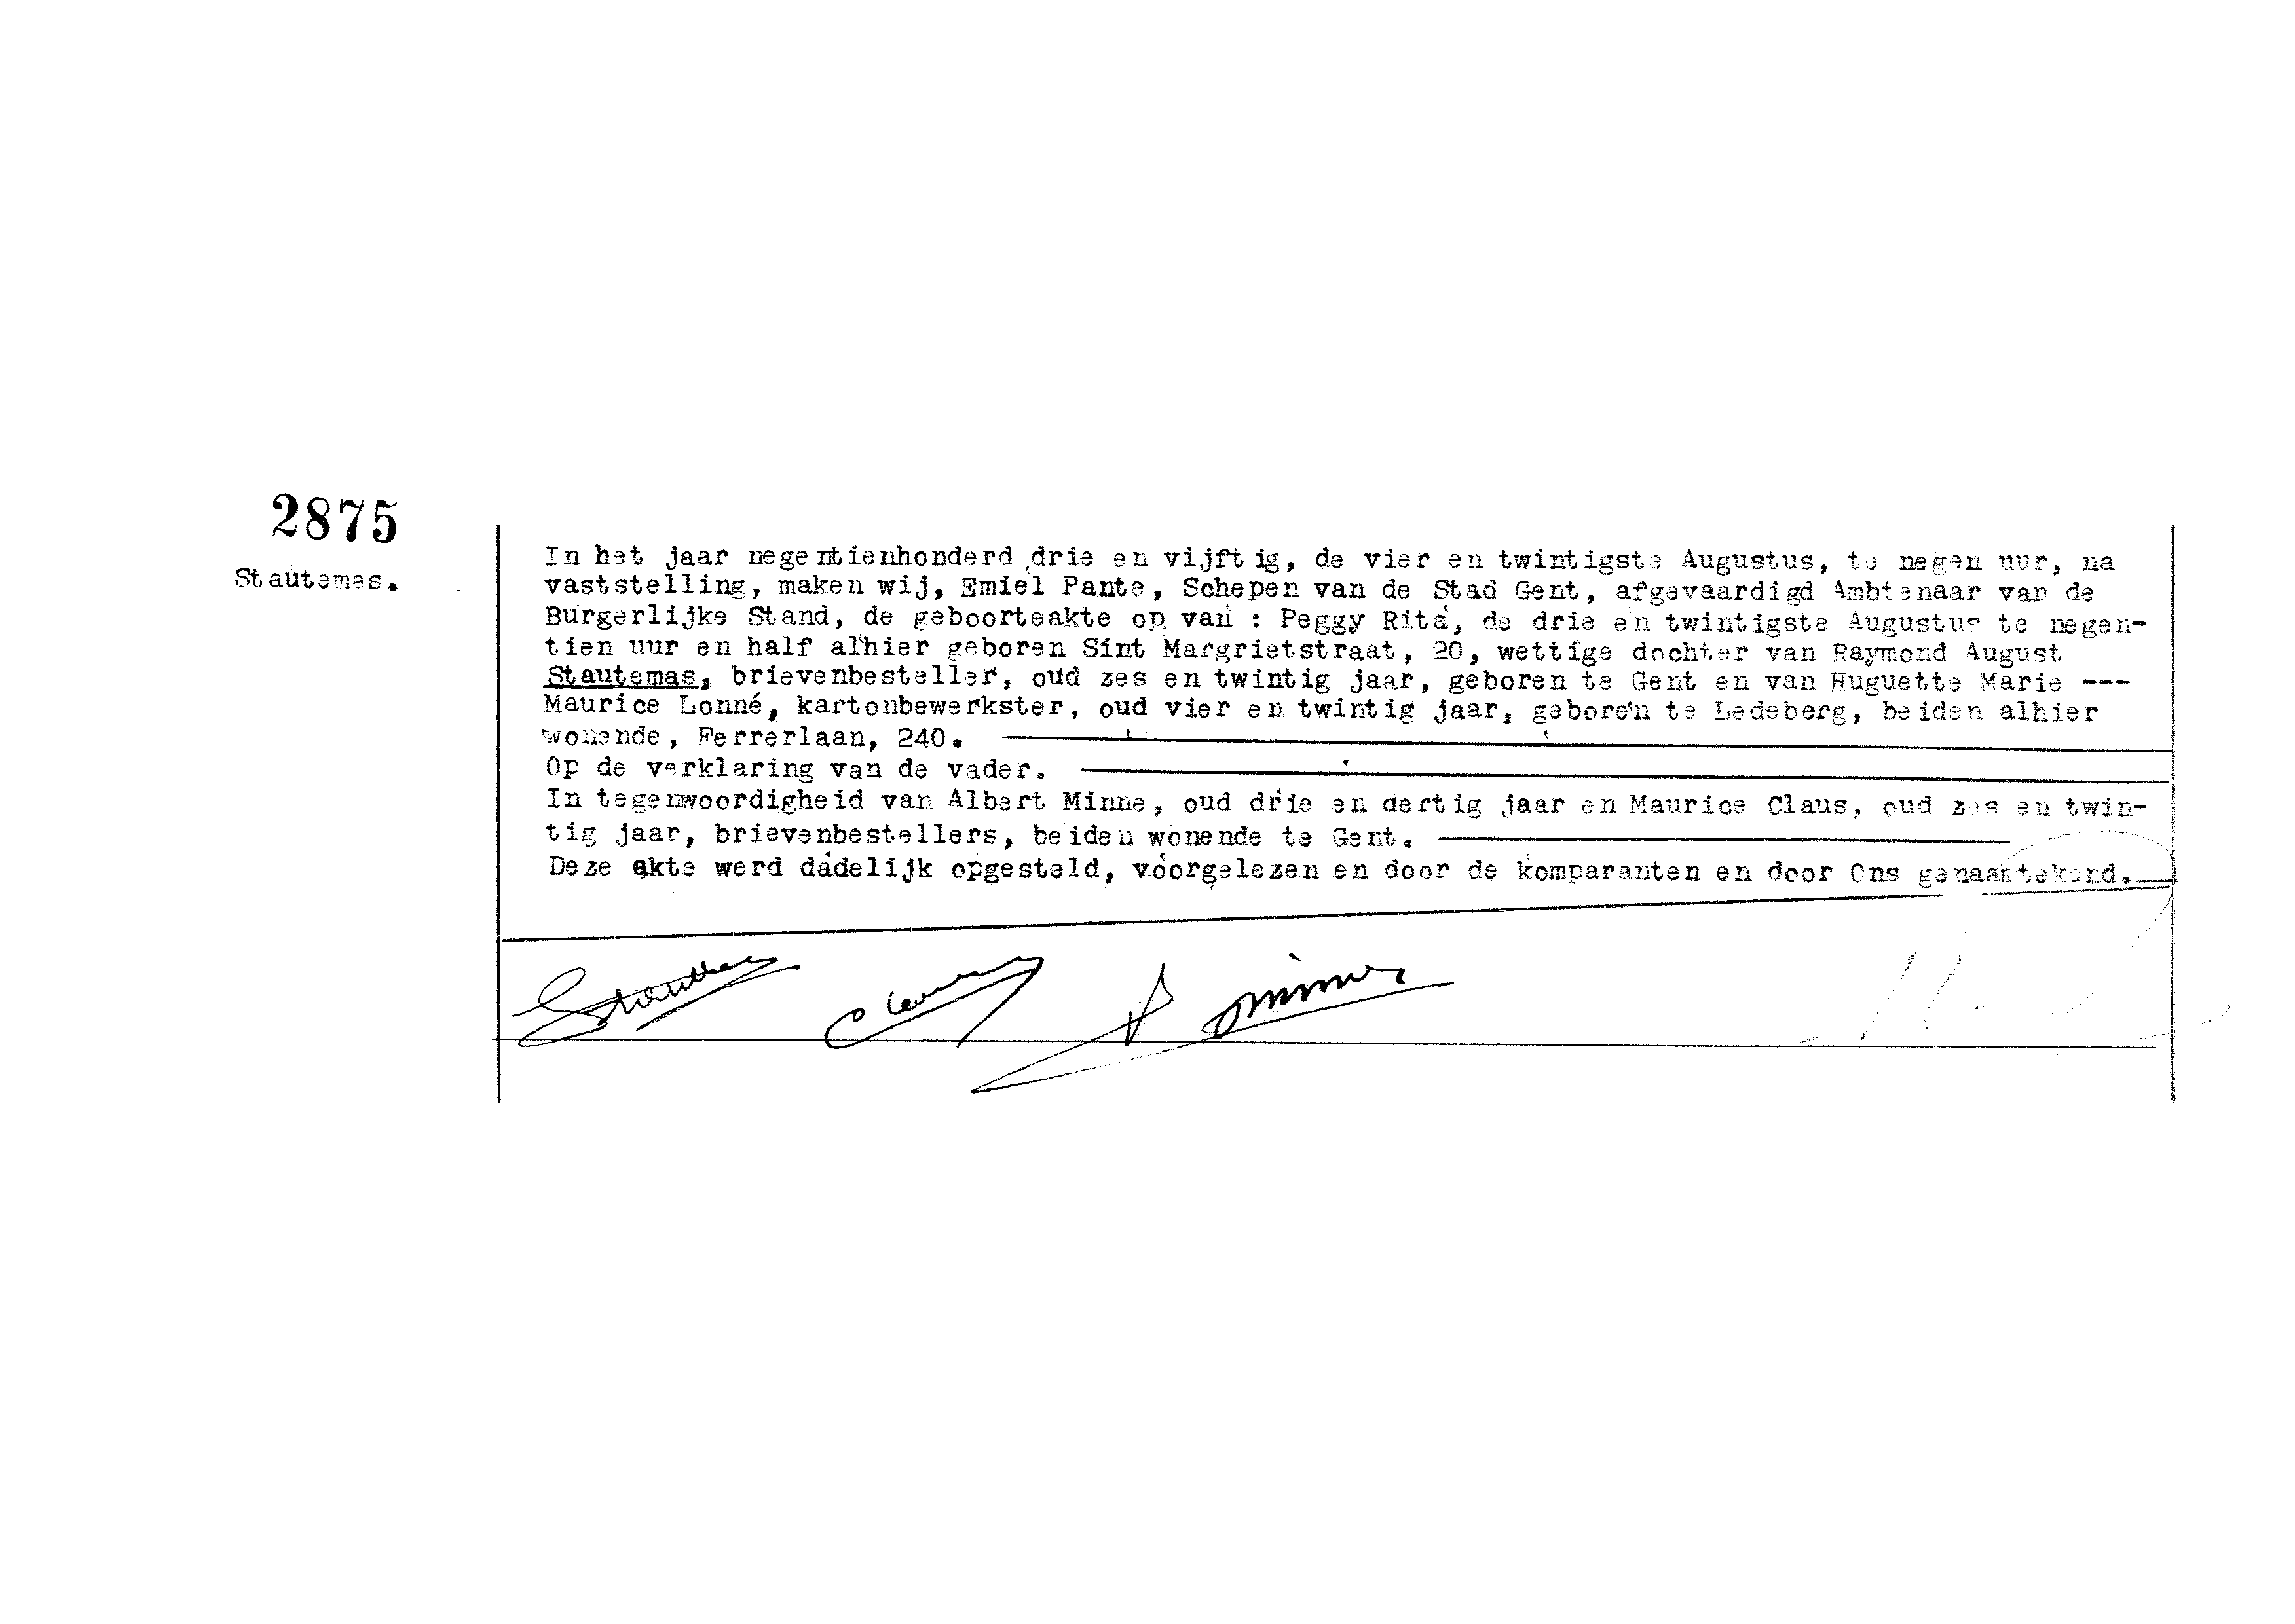 2875
Stautemas.
In het jaar negentienhonderd drie en vijftig, de vier en twintigste Augustus, te negen uur, na
vaststelling, maken wij, Emiel Pante, Schepen van de Stad Gent, afgevaardigd Ambtenaar van de
Burgerlijke Stand, de geboorteakte op van : Peggy Rita, de drie en twintigste Augustus te negen-
tien uur en half alhier geboren Sint Margrietstraat, 20, wettige dochter van Raymond August
Stautemas, brievenbesteller, oud zes en twintig jaar, geboren te Gent en van Huguette Marie ---
Maurice Lonné, kartonbewerkster, oud vier en twintig jaar, geboren te Ledeberg, beiden alhier
wonende, Ferrerlaan, 240.
Op de verklaring van de vader.
In tegenwoordigheid van Albert Minne, oud drie en dertig jaar en Maurice Claus, oud zes en twin-
tig jaar, brievenbestellers, beiden wonende te Gent.
Deze akte werd dadelijk opgesteld, voorgelezen en door de komparanten en door Ons genaamtekend.